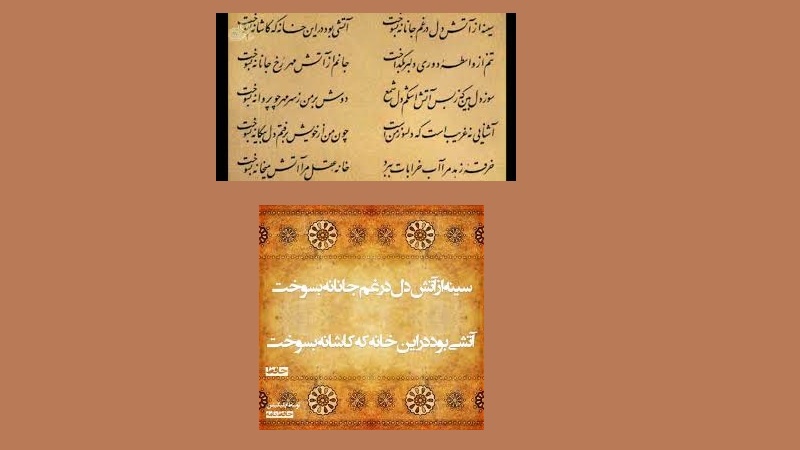 سینه از آتش دل در غم جانانه بسوخت آتشی بود در این خانه که کاشانه بسوخت
تنم از واسطه دوری دلبر بگداخت جانم از آتش مهر رخ جانانه بسوخت
سوز دل بین که ز بس آتش اشکم دل شمع دوش بر من ز سر مهر چو پروانه بسوخت
آشنایی نه غریب است که دلسوز من است چون من از خویش برفتم دل بیگانه بسوخت
خرقه زهد مرا آب خرابات ببرد خانه عقل مرا آتش میخانه بسوخت
سینه از آتش دل در غم جانانه بسوخت
آتشی بود در این خانه که کاشانه بسوخت